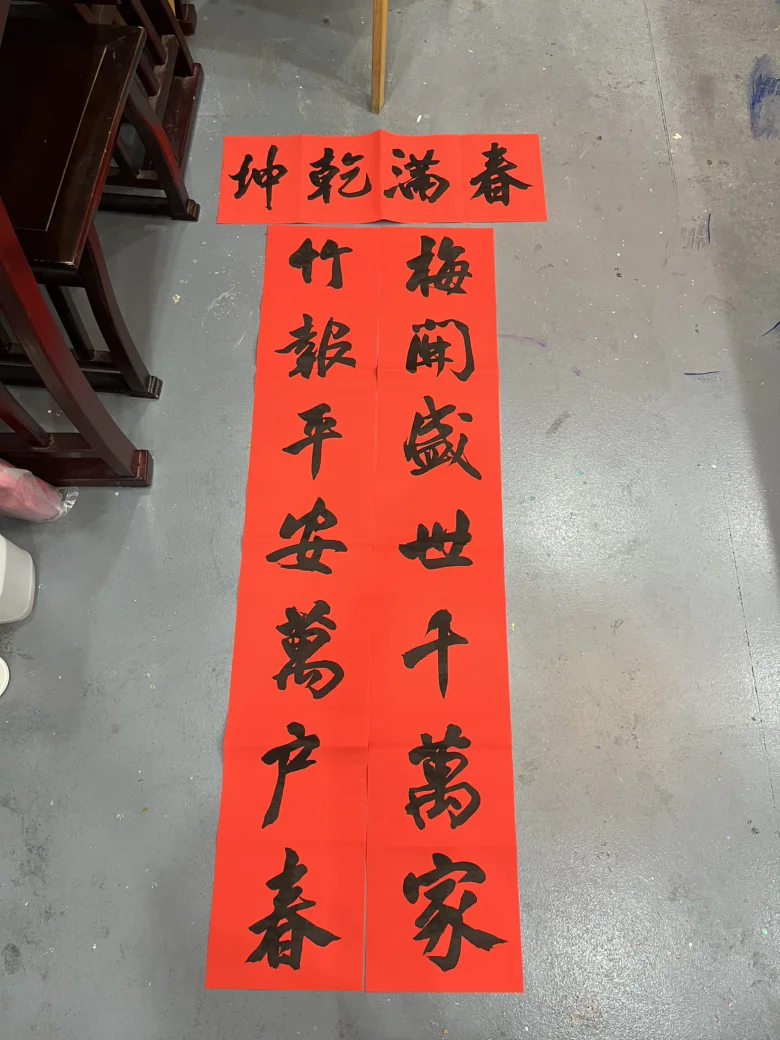 春滿乾坤
梅開盛世千萬家
竹報平安萬户春